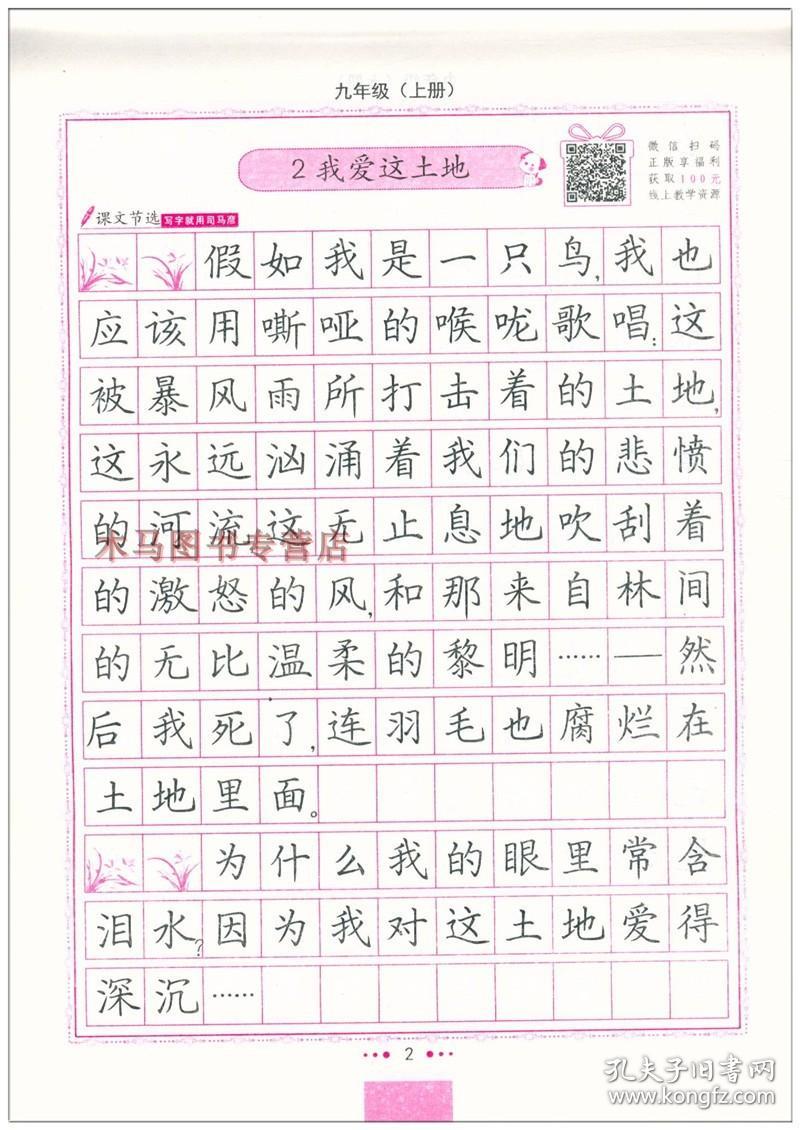 九年级（上册）
2 我爱这土地
微信扫码
正版享福利
获取100元
线上教学资源
课文节选 写字就用司马彦
假如我是一只鸟，我也
应该用嘶哑的喉咙歌唱：这
被暴风雨所打击着的土地，
这永远汹涌着我们的悲愤
的河流，这无止息地吹刮着
木马图书专营店
的激怒的风，和那来自林间
的无比温柔的黎明……——然
后我死了，连羽毛也腐烂在
土地里面。
为什么我的眼里常含
泪水？因为我对这土地爱得
深沉……
2
孔夫子旧书网
www.kongfz.com